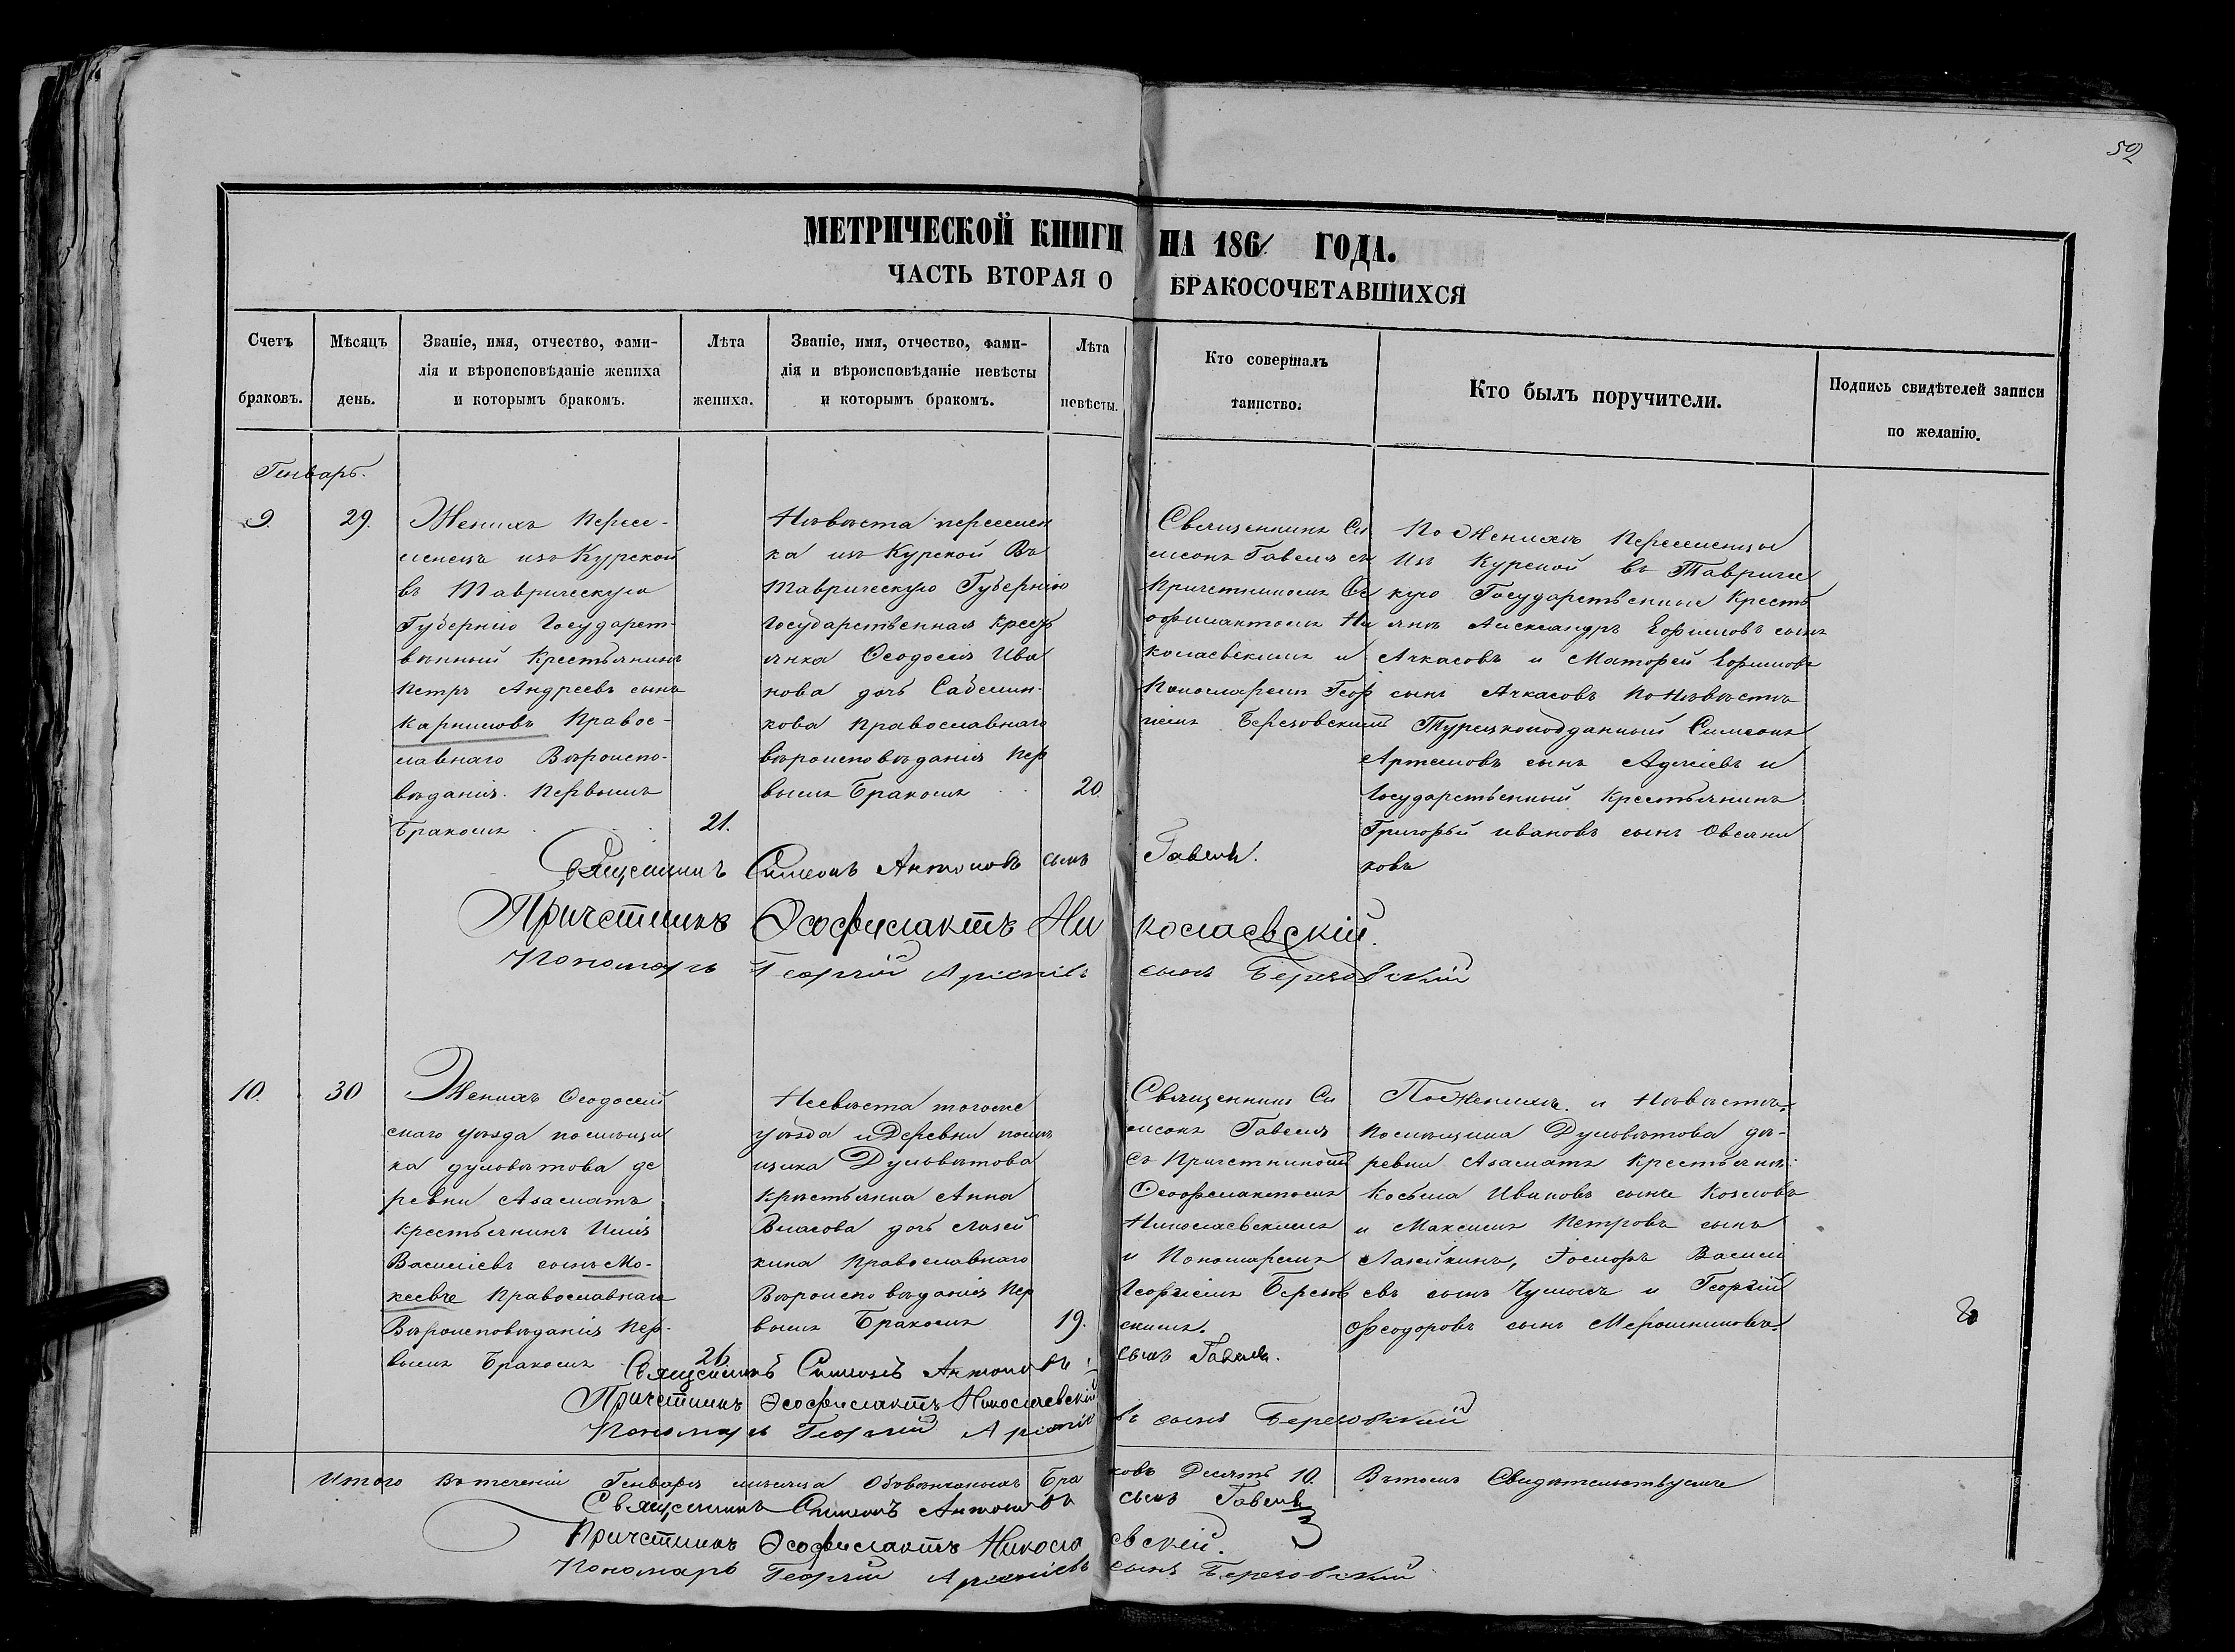 52
МЕТРИЧЕСКОЙ КНИГИ НА 1861 ГОДА.
ЧАСТЬ ВТОРАЯ О БРАКОСОЧЕТАВШИХСЯ
Счетъ
браковъ.
Мѣсяцъ
день.
Званіе, имя, отчество, фами-
лія и вѣроисповѣданіе жениха
и которымъ бракомъ.
Лѣта
жениха.
Званіе, имя, отчество, фами-
лія и вѣроисповѣданіе невѣсты
и которымъ бракомъ.
Лѣта
невѣсты.
Кто совершалъ
таинство.
Кто былъ поручители.
Подпись свидѣтелей записи
по желанію.
Генварь.
9.
29.
Женихъ Пересе-
ленецъ изъ Курской
въ Таврическую
Губернію Государст-
венный Крестьянинъ
Петръ Андреевъ сынъ
Карпиловъ Правос-
лавнаго Вѣроиспо-
вѣданія. Первымъ
Бракомъ
21.
Невѣста переселен
ка изъ Курской Въ
Таврическую Губернію
Государственная крест
янка Ѳеодосія Ива
нова дочь
кова Православнаго
вѣроисповѣданія Пер
вымъ Бракомъ
20.
Священникъ Си
меонъ Гавель съ
Причетникомъ Ѳе
офилактомъ Ни
колаевскимъ и
Пономаремъ Геор
гіемъ Березовскимъ
По Женихѣ Переселенцы
Изъ Курской въ Тавриче
кую Государственные Кресть
янъ Александръ Ефимовъ сынъ
Ачкасовъ и Матфей Ефимовъ
сынъ Ачкасовъ По Невѣстѣ
Турецкоподданный Симеонъ
Артемовъ сынъ и
Государственный Крестьянинъ
Григорій ивановъ сынъ Овсяни
ковъ
Священникъ Симеонъ Антоновъ сынъ Гавель.
Причетникъ Ѳеофилактъ Николаевскій.
Пономарь Георгій сынъ Березовскій
10.
30
Женихъ Ѳеодосій
скаго уѣзда помѣщи
ка Дульветова де
ревни Азаматъ
крестьянинъ Илія
Василіевъ сынъ Мо-
Православнаго
Вѣроисповѣданія Пер-
вымъ Бракомъ
26
Невѣста тогоже
уѣзда и Деревни помѣ
щика Дульветова
Крестьянка Анна
Власова дочь Лазей
кина Православнаго
Вѣроисповѣданія Пер
вымъ Бракомъ
19.
Священникъ Си
меонъ Гавель
съ Причетникомъ
Ѳеофилактомъ
Николаевскимъ
и Пономаремъ
Георгіемъ Березов
скимъ.
По Женихѣ и Невѣстѣ
помѣщика Дульветова де-
ревни Азаматъ Крестьяне:
Косьма Ивановъ сынъ Козловъ
и Максимъ Петровъ сынъ
Лазейкинъ, Василі
евъ сынъ и Георгій
Ѳеодоровъ сынъ Мерошниковъ.
Священникъ Симеонъ Антоновъ сынъ Гавель.
Причетникъ Ѳеофилактъ Николаевскій
Пономарь Георгій сынъ Березовскій
Итого Въ теченіи Генваря мѣсяца Обвѣнчанныхъ Браковъ Десять 10. Въ томъ Свидѣтельствуемъ
Священникъ Симеонъ Антоновъ сынъ Гавель
Причетникъ Ѳеофилактъ Николаевскій.
Пономарь Георгій сынъ Березовскій